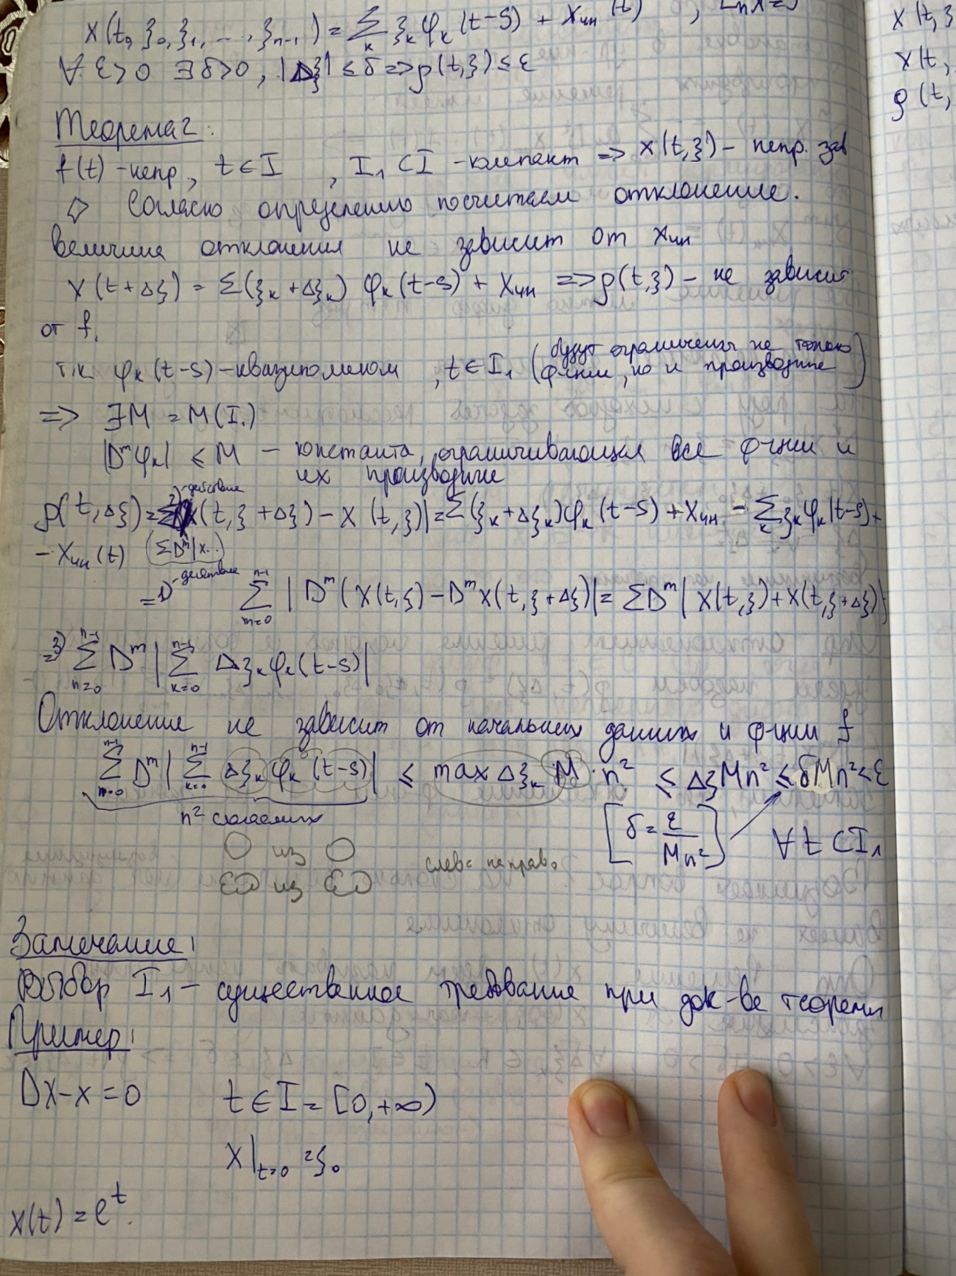 x(t, ξ₀, ξ₁, ..., ξₙ₋₁) = Σₖ ξₖ φₖ(t-s) + xчн(t) , Lₙx=
∀ ε>0 ∃ δ>0, |Δξ| ≤ δ => ρ(t,ξ) ≤ ε
Теорема 2.
f(t) - непр, t∈I , I₁⊂I - компакт => x(t,ξ) - непр. зав
◊ Согласно определению посчитаем отклонение.
величина отклонения не зависит от xчн
x(t+Δξ) = Σ(ξₖ+Δξₖ) φₖ(t-s) + xчн => ρ(t,ξ) - не зависит
от f.
т.к. φₖ(t-s) - квазиполином, t∈I₁ (будут ограничены не только ф-ции, но и производные)
=> ∃M = M(I₁)
|Dᵐφₖ| ≤ M - константа, ограничивающая все ф-ции и
их производные
ρ(t,Δξ) = x(t,ξ+Δξ) - x(t,ξ)| = Σ(ξₖ+Δξₖ)φₖ(t-s) + xчн - Σₖ ξₖφₖ(t-s) +
- xчн(t) (ΣDᵐ|x..)
1) действие
= Σₘ₌₀ⁿ⁻¹ |Dᵐ(x(t,ξ) - Dᵐx(t,ξ+Δξ)| = ΣDᵐ| x(t,ξ) + x(t,ξ+Δξ)|
3)= Σₙ₌₀ⁿ⁻¹ Dᵐ |Σₖ₌₀ⁿ⁻¹ Δξₖφₖ(t-s)|
Отклонение не зависит от начальных данных и ф-ции f
Σₘ₌₀ⁿ⁻¹ Dᵐ|Σₖ₌₀ⁿ⁻¹ Δξₖ φₖ(t-s)| ≤ max Δξₖ M·n² ≤ ΔξMn² ≤ δMn² < ε
n² слагаемых
[δ = ε/Mn²] ∀ t ⊂ I₁
из
слева направо
из
Замечание!
Выбор I₁ - существенное требование при док-ве теоремы
Пример!
Dx-x=0 t∈I = [0,+∞)
x|ₜ₌₀ = ξ₀
x(t) = eᵗ.
x(t,ξ
x(t,
ρ(t,